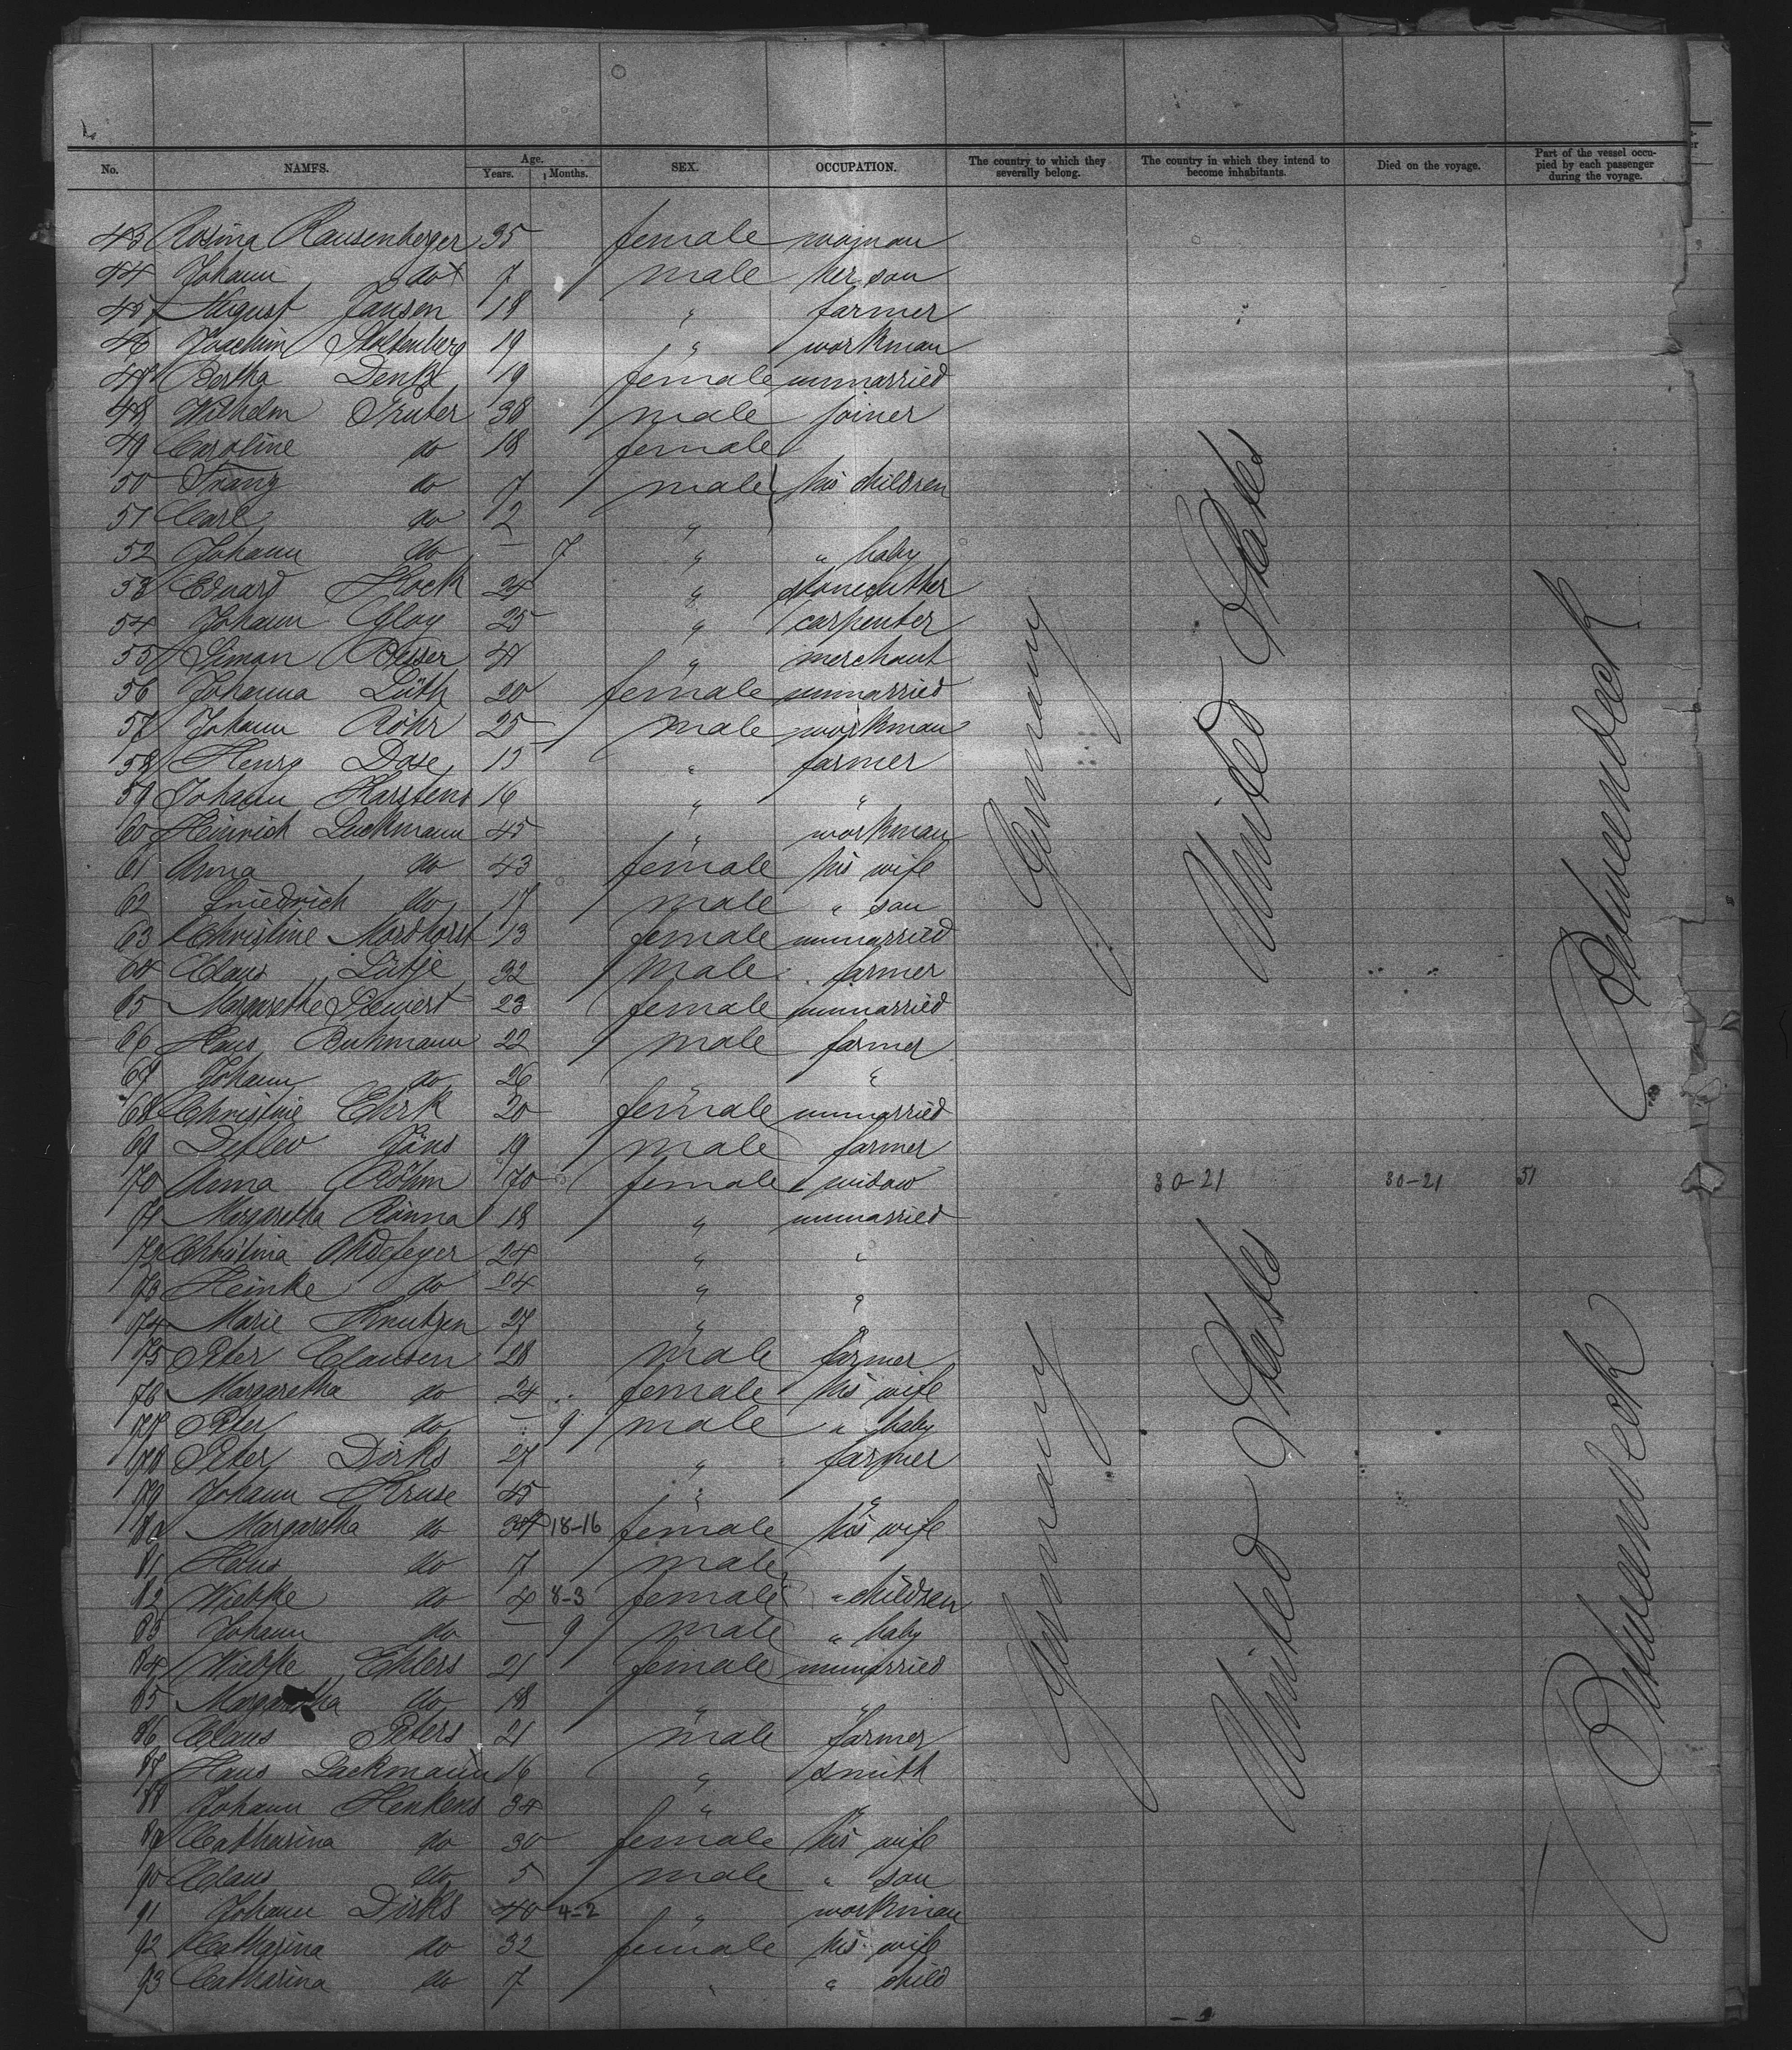 No. NAMES. Age. Years. Months. SEX. OCCUPATION. The country to which they severally belong. The country in which they intend to become inhabitants. Died on the voyage. Part of the vessel occupied by each passenger during the voyage.
43 Rosina Rausenberger 35 female woman
44 Johann do x 7 male her son
45 August Jansen 18 " farmer
46 Joachim Stoltenberg 19 " workman
47 Bertha Denk 19 female unmarried
48 Wilhelm Struter 38 male joiner
49 Caroline do 18 female
50 Franz do 7 male his children
51 Carl do 2 "
52 Johann do — 7 " " baby
53 Eduard Kock 24 " stonecutter
54 Johann Gloy 25 " carpenter
55 Simon Besser 41 " merchant
56 Johanna Lüth 20 female unmarried
57 Johann Röhr 25 male workman
58 Henry Dose 15 " farmer
59 Johann Karstens 16 " "
60 Heinrich Luckmann 45 " workman
61 Anna do 43 female his wife
62 Friedrich do 17 male " son
63 Christine Nordhorst 13 female unmarried
64 Claus Lütje 32 male farmer
65 Margarethe Siewert 23 female unmarried
66 Hans Buhmann 22 male farmer
67 Johann do 26 " "
68 Christine Ehrk 20 female unmarried
69 Detlev Jöns 19 male farmer
70 Anna Röhm 70 female widow 30-21 30-21 51
71 Margaretha Rönna 18 " unmarried
72 Christina Ohdefeyer 24 " "
73 Heinke do 24 " "
74 Marie Knutzen 27 " "
75 Peter Clausen 28 male farmer
76 Margaretha do 24 female his wife
77 Peter do — 9 male " baby
78 Peter Dirks 27 " farmer
79 Johann Kruse 45 " "
80 Margaretha do 34 18-16 female his wife
81 Hans do 7 male
82 Wiebke do 4 8-3 female " children
83 Johann do — 9 male " baby
84 Wiebke Ehlers 21 female unmarried
85 Margaretha do 18 " "
86 Claus Peters 21 male farmer
87 Hans Lackmann 16 " smith
88 Johann Henkens 34 " "
89 Catharina do 30 female his wife
90 Claus do 5 male " son
91 Johann Dirks 40 4-2 " workman
92 Catharina do 32 female his wife
93 Catharina do 7 " " child
Germany
United States
Betweendeck
Germany
United States
Betweendeck